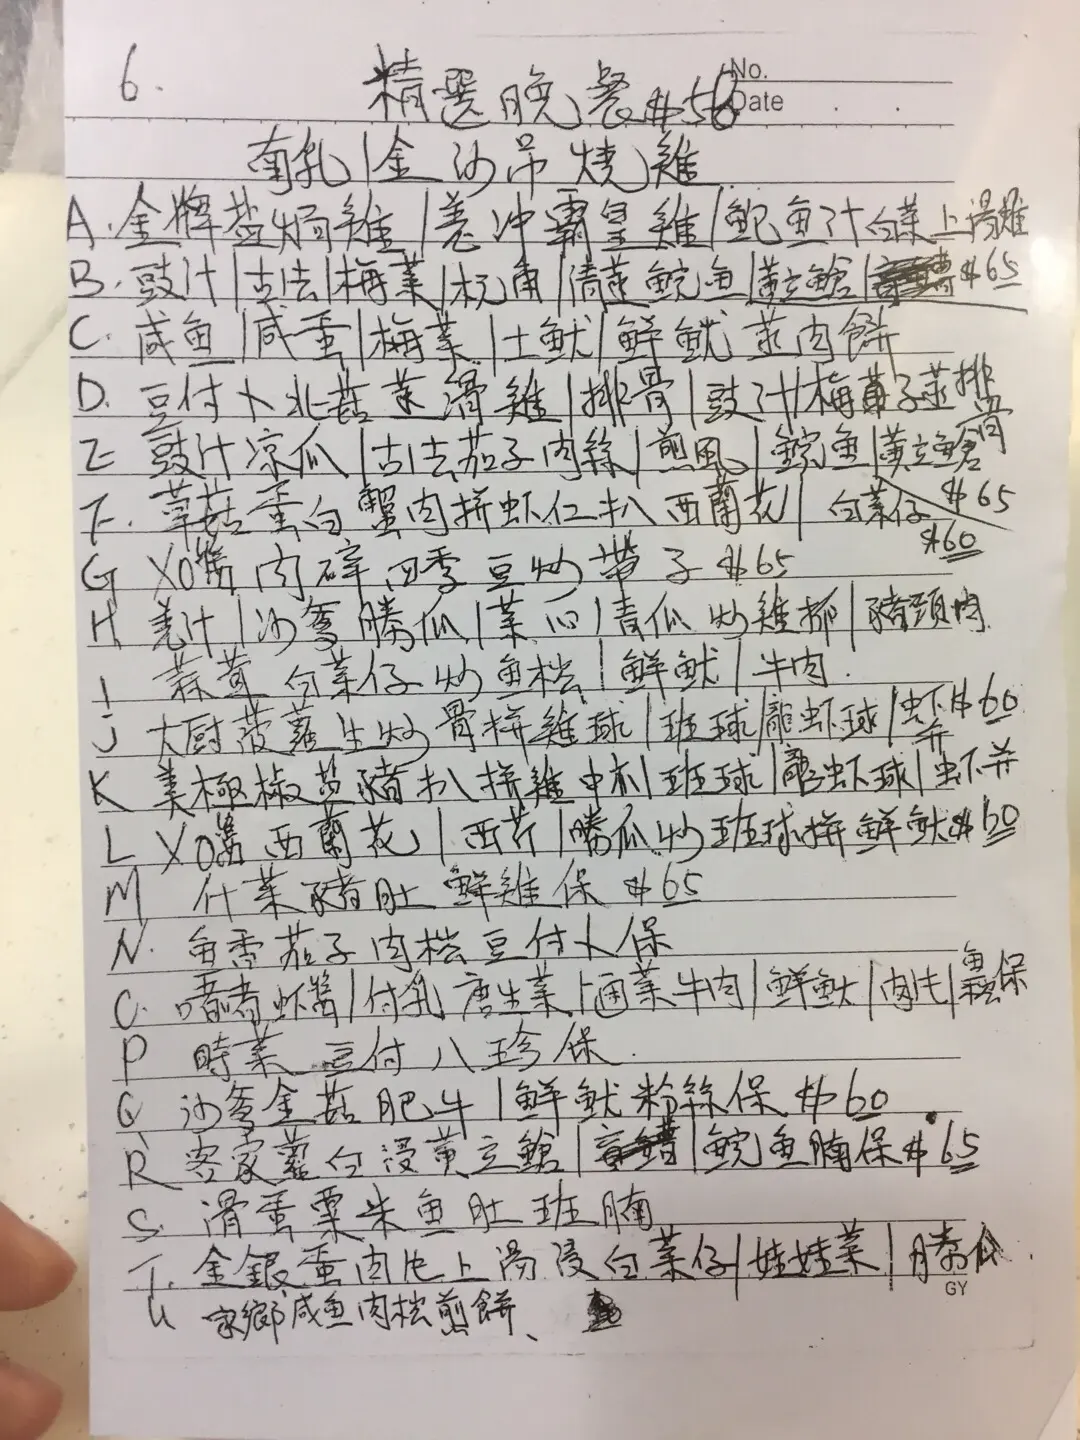 6. 精選晚餐 $56
No.
Date
南乳|金沙吊燒雞
A. 金牌盐焗雞|羗冲霸皇雞|鲍鱼汁白菜上湯雞
B. 豉汁|古法|梅菜|榄角|清蒸鲩鱼|黄立鲳| $65
C. 咸鱼|咸蛋|梅菜|土鱿|鮮鱿蒸肉餅
D. 豆付卜北菇蒸滑雞|排骨|豉汁梅子蒸排骨
E 豉汁凉瓜|古法茄子肉絲|煎風|鲩鱼|黄立鲳 $65
F. 草菇蛋白蟹肉拼虾仁扒西蘭花|白菜仔 $60
G XO醬肉碎四季豆炒带子 $65
H 羗汁|沙爹勝瓜|菜心|青瓜炒雞柳|豬頸肉
I 蒜茸白菜仔炒鱼松|鮮鱿|牛肉.
J 大厨菠蘿生炒骨拼雞球|班球|龍虾球|虾并 $60
K 美極椒盐豬扒拼雞中札|班球|龍虾球|虾并
L XO醬西蘭花|西芹|勝瓜炒班球拼鮮鱿 $60
M 什菜豬肚鮮雞保 $65
N. 鱼香茄子肉松豆付卜保
O. 啫啫虾醬|付乳唐生菜|通菜牛肉|鮮鱿|肉片|鱼松保
P 時菜豆付八珍保
Q 沙爹金菇肥牛|鮮鱿粉絲保 $60
R 客家蘿白浸黄立鲳| |鲩鱼腩保 $65
S. 滑蛋粟米鱼肚班腩
T. 金銀蛋肉片上湯浸白菜仔|娃娃菜|勝瓜
GY
U 家鄉咸鱼肉松煎餅、